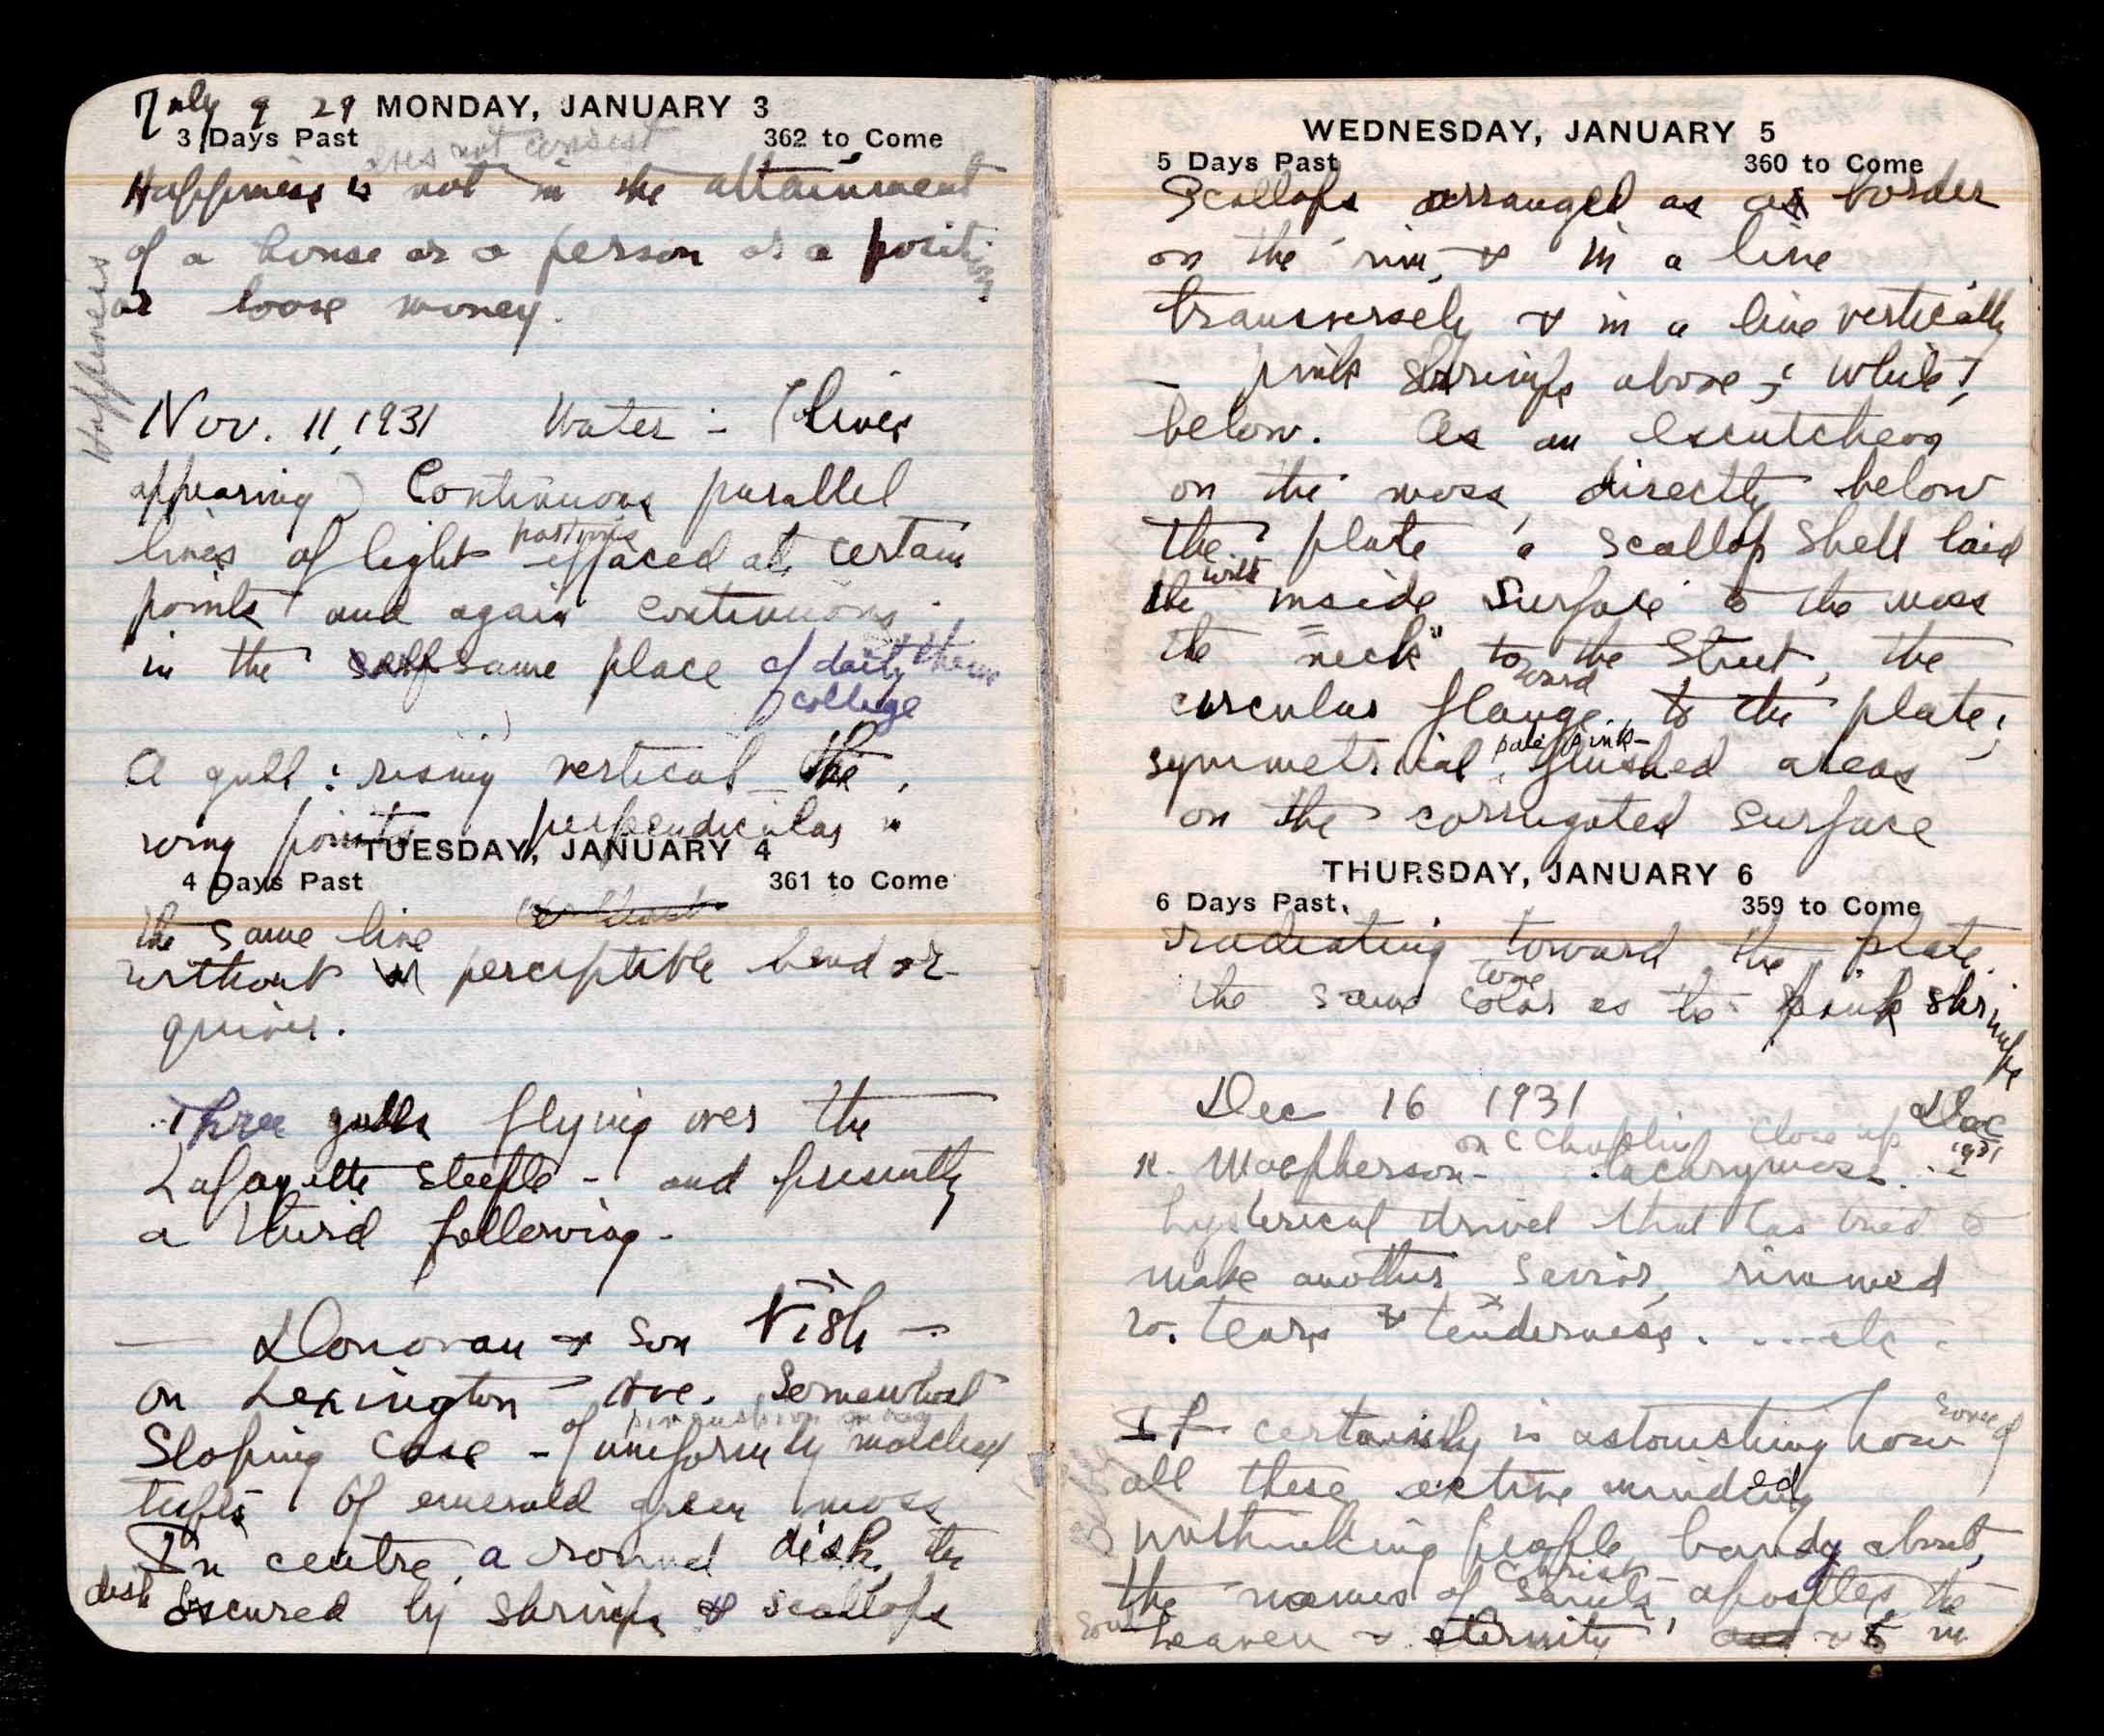 July 9 29 MONDAY, JANUARY 3
3 Days Past 362 to Come
does not consist
Happiness is not in the attainment
of a house or a person or a position
or loose money.
Happiness
Nov. 11, 1931 Water - (lines
appearing) Continuous parallel
lines of light effaced at certain
points and again continuous
in the self same place of daily theme
college
A gull: rising vertical the
wing points perpendicular in
TUESDAY, JANUARY 4
4 Days Past 361 to Come
the same line
without perceptible bend or
quiver.
Three gulls flying over the
Lafayette steeple - and presently
a third following.
— Donovan & Son Fish —
on Lexington Ave. Somewhat
of pincushion
Sloping case - uniformly matched
tufts of emerald green moss
In centre, a round dish, the
dish
secured by shrimps & scallops
WEDNESDAY, JANUARY 5
5 Days Past 360 to Come
Scallops arranged as a border
on the rim, & in a line
transversely & in a line vertically
— pink shrimps above; white
below. As an escutcheon
on the moss directly below
the plate a scallop shell laid
with
the inside surface to the moss
the "neck" toward the street, the
circular flange to the plate;
pale pink-
symmetrical flushed areas
on the corrugated surface
THURSDAY, JANUARY 6
6 Days Past 359 to Come
radiating toward the plate
tone
the same color as the pink shrimps
Dec 16 1931 Dec
1931
on C Chaplin Close up
K. Macpherson - lachrymose
hysterical drivel that has tried to
make another Savior, rimmed
w. tears & tenderness. ....etc.
some of
It certainly is astonishing how
all these active minded
unthinking people bandy about,
Christ
the names of Saints apostles, the
soul
heaven & eternity, and & in